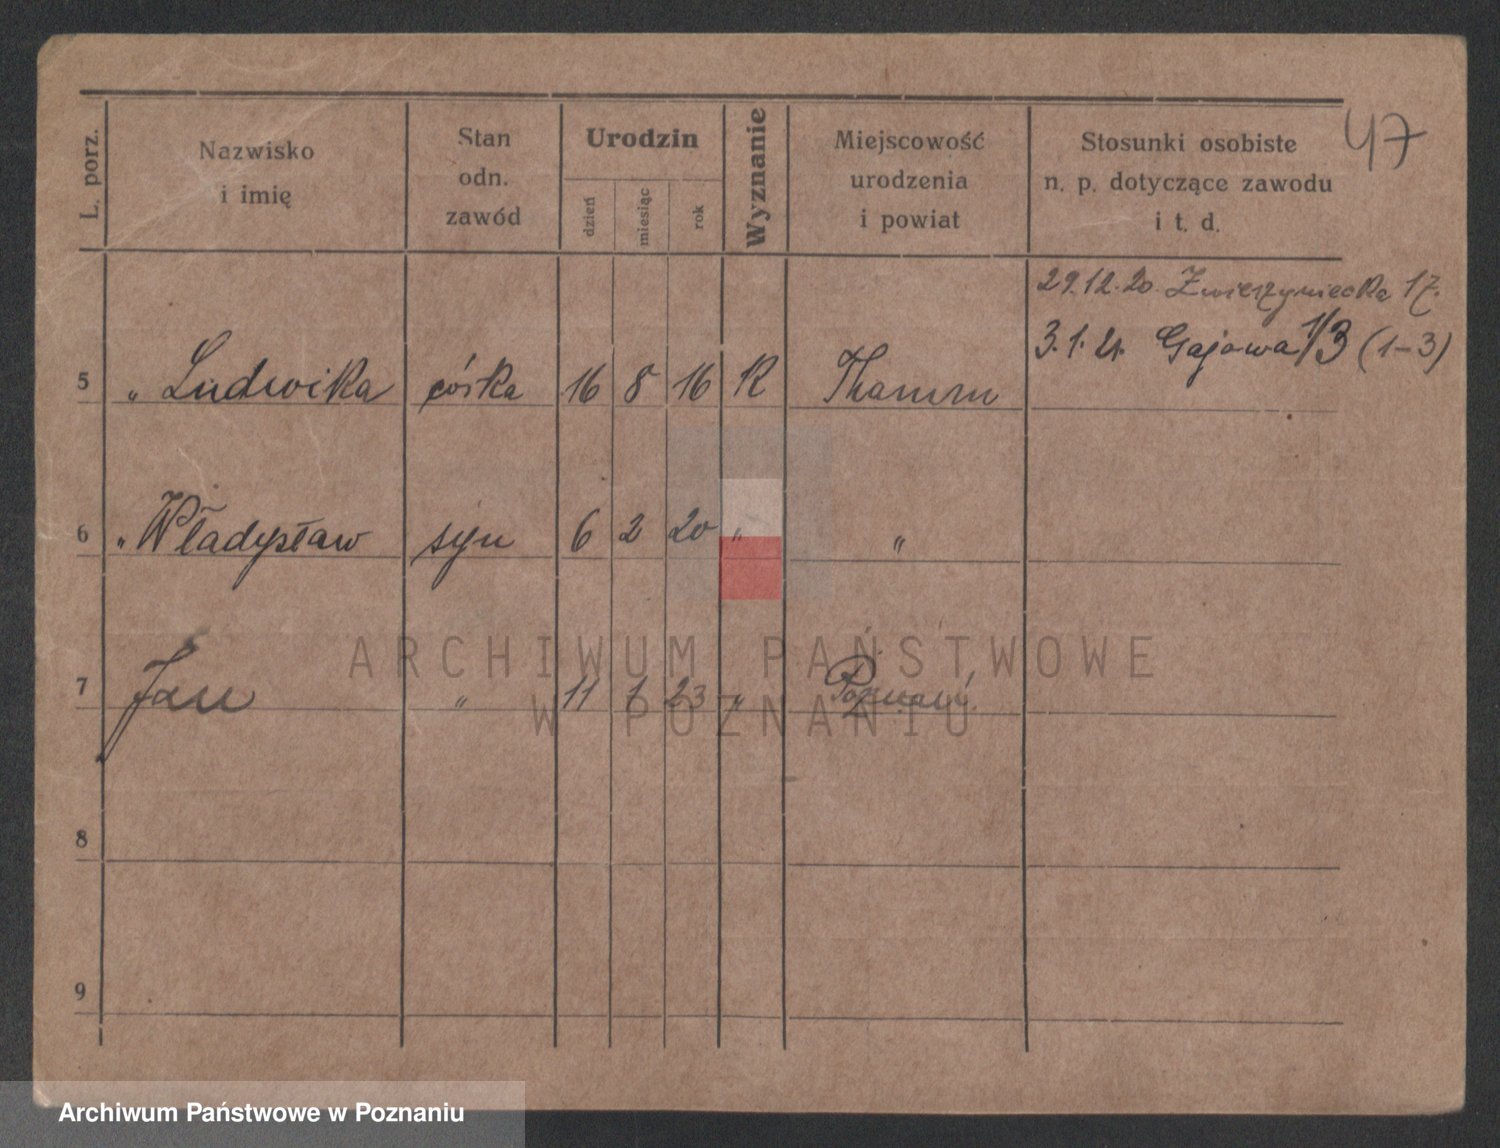 47
L. porz.
Nazwisko
i imię
Stan
odn.
zawód
Urodzin
dzień
miesiąc
rok
Wyznanie
Miejscowość
urodzenia
i powiat
Stosunki osobiste
n. p. dotyczące zawodu
i t. d.
29.12.20. Zwierzyniecka 17.
3.1.21. Gajowa 1/3 (1-3)
5 " Ludwika córka 16 8 16 R Thamm
6 " Władysław syn 6 2 20 " "
7 Jan " 11 1 23 " Poznań
8
9
ARCHIWUM PAŃSTWOWE
W POZNANIU
Archiwum Państwowe w Poznaniu